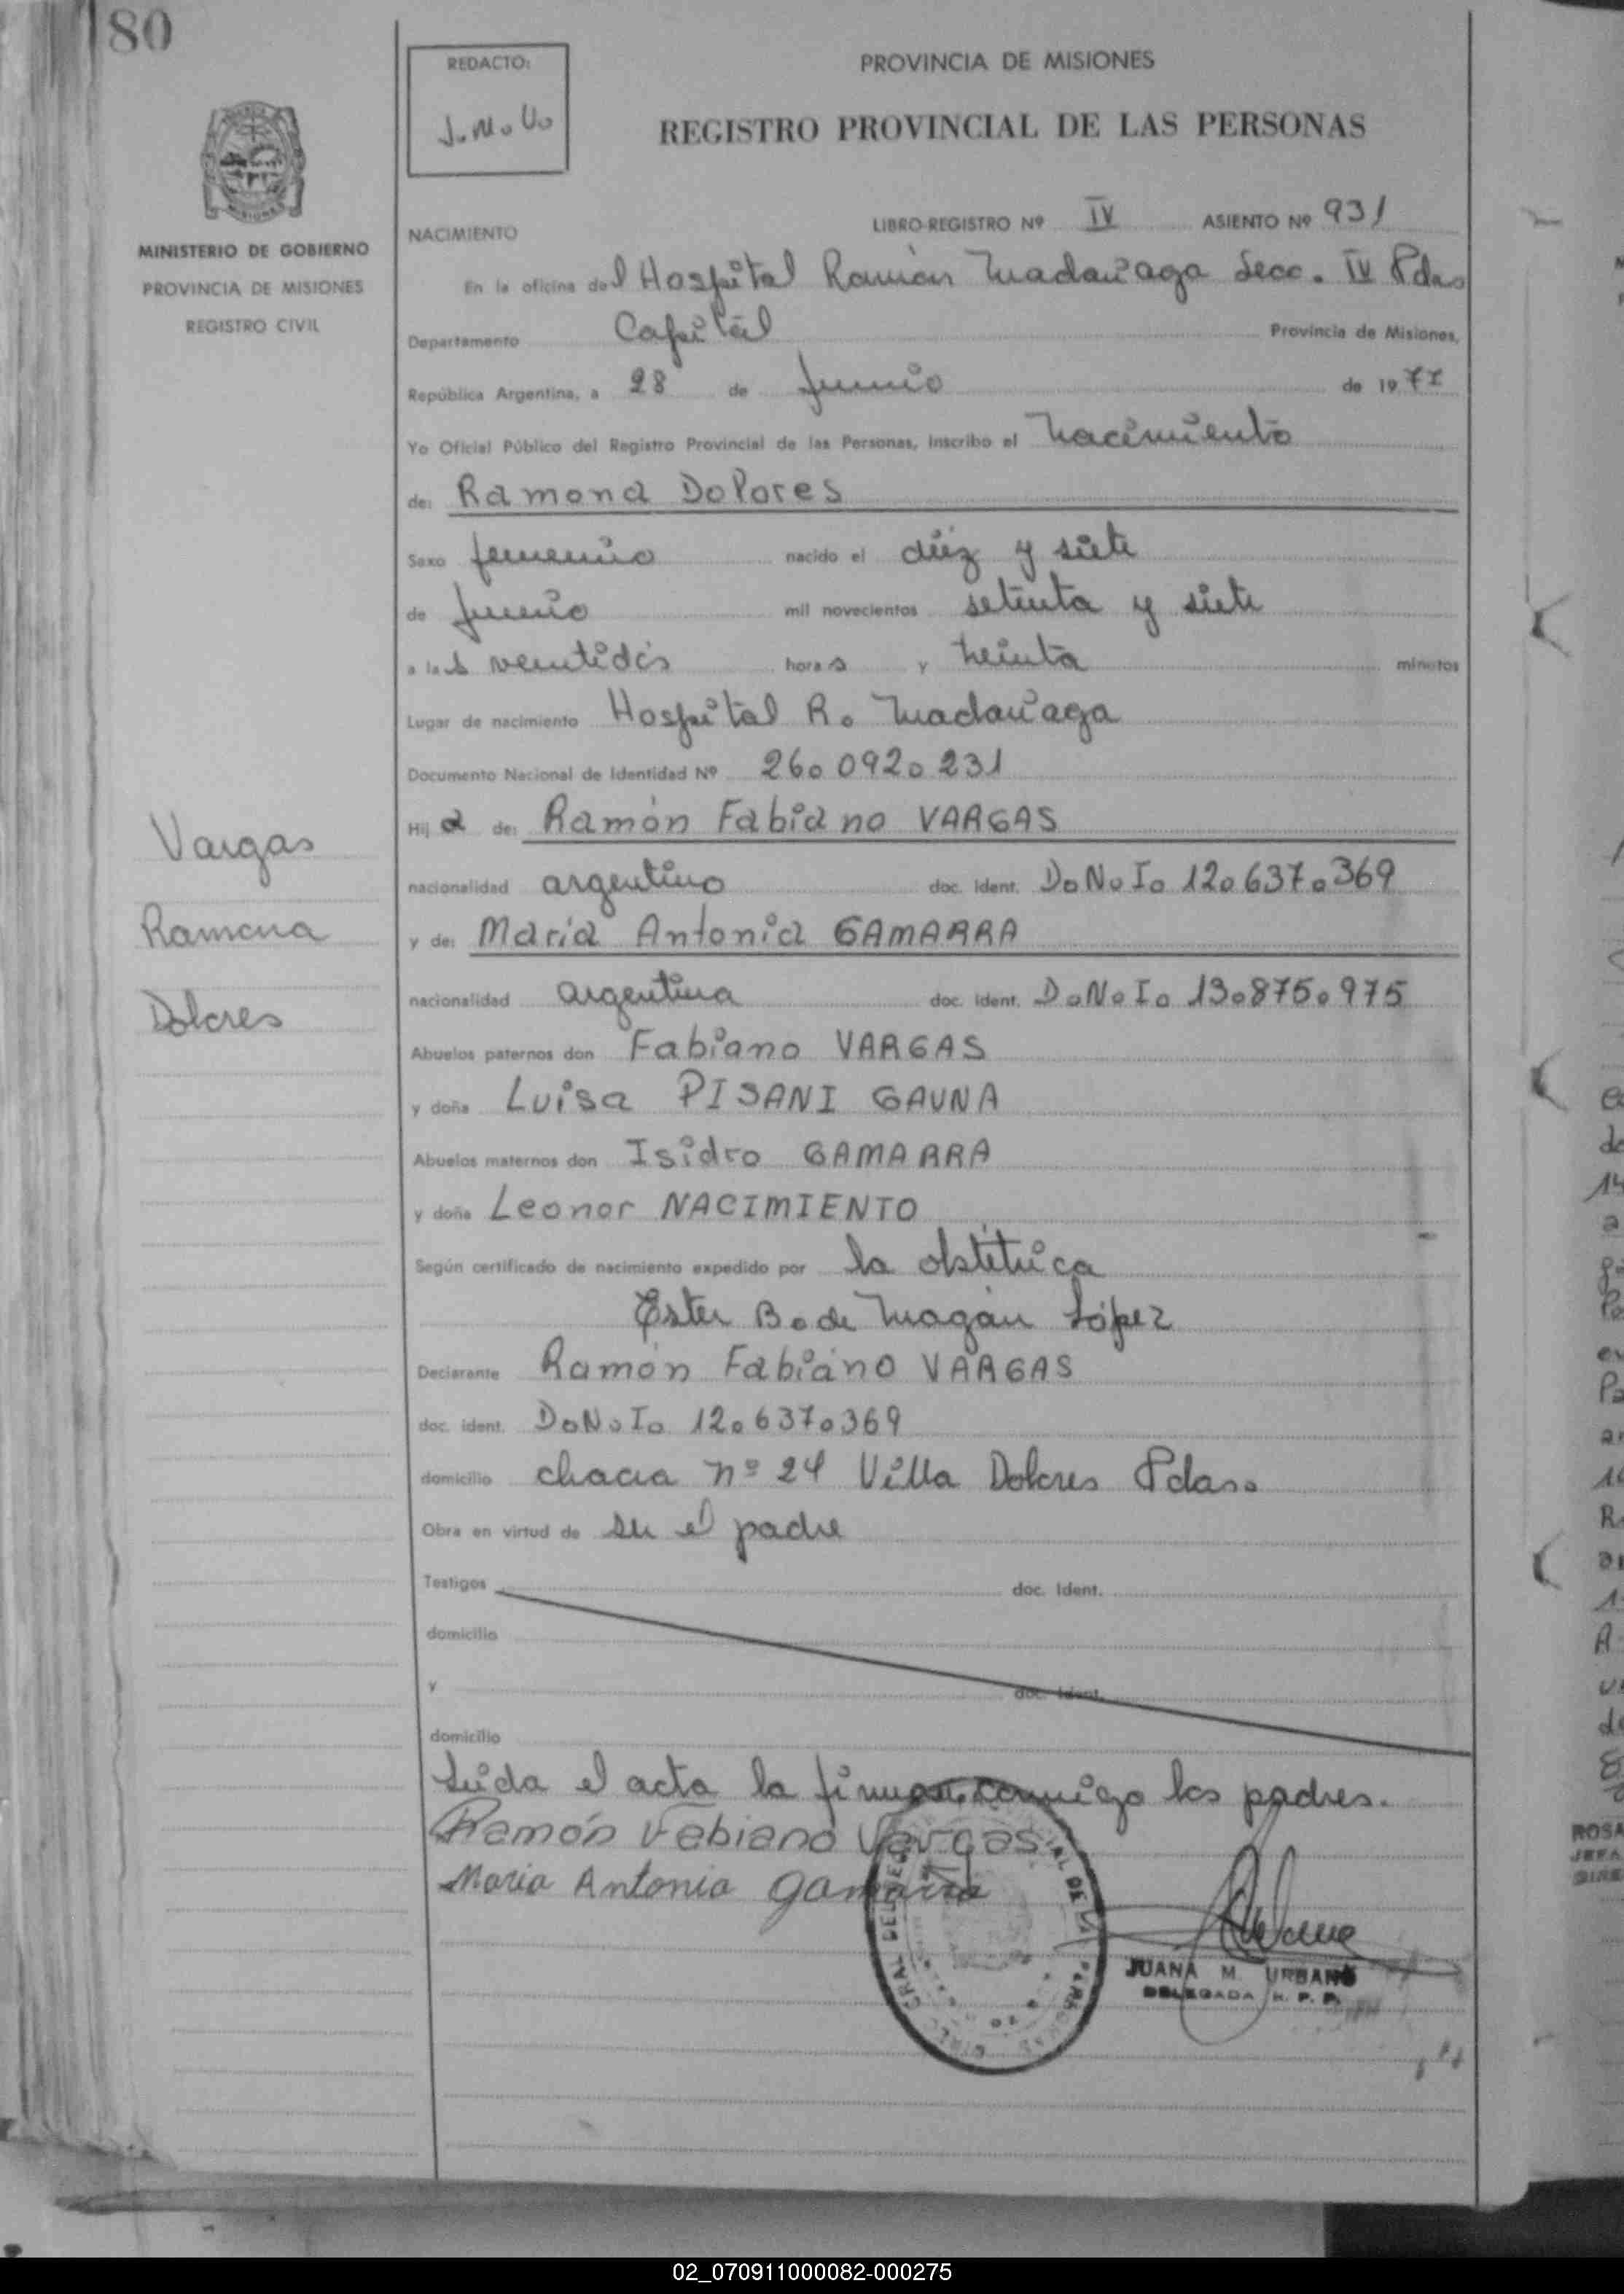 180
REDACTO:
J. M. U.
PROVINCIA DE MISIONES
REGISTRO PROVINCIAL DE LAS PERSONAS
MINISTERIO DE GOBIERNO
PROVINCIA DE MISIONES
REGISTRO CIVIL
NACIMIENTO LIBRO-REGISTRO Nº IV ASIENTO Nº 931
En la oficina del Hospital Ramón Madariaga Secc. IV Pdas
Departamento Capital Provincia de Misiones,
República Argentina, a 28 de junio de 1977
Yo Oficial Público del Registro Provincial de las Personas, inscribo el nacimiento
de: Ramona Dolores
Sexo femenino nacido el diez y siete
de junio mil novecientos setenta y siete
a las veintidós horas y treinta minutos
Lugar de nacimiento Hospital R. Madariaga
Documento Nacional de Identidad Nº 26.092.231
Hija de: Ramón Fabiano VARGAS
nacionalidad argentino doc. ident. D.N.I. 12.637.369
y de: María Antonia GAMARRA
nacionalidad argentina doc. ident. D.N.I. 13.875.975
Abuelos paternos don Fabiano VARGAS
y doña Luisa PISANI GAUNA
Abuelos maternos don Isidro GAMARRA
y doña Leonor NACIMIENTO
Según certificado de nacimiento expedido por la obstétrica
Ester B. de Magán López
Declarante Ramón Fabiano VARGAS
doc. ident. D.N.I. 12.637.369
domicilio chacra nº 24 Villa Dolores Pdas.
Obra en virtud de ser el padre
Testigos doc. ident.
domicilio
y doc. ident.
domicilio
Leída el acta la firman conmigo los padres.
Ramón Fabiano Vargas
Maria Antonia Gamarra
JUANA M. URBANO
DELEGADA R. P. P.
Vargas
Ramona
Dolores
02_070911000082-000275